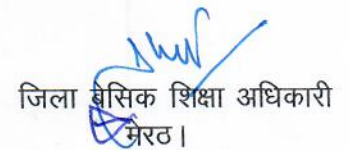 जिला बेसिक शिक्षा अधिकारी
मेरठ।